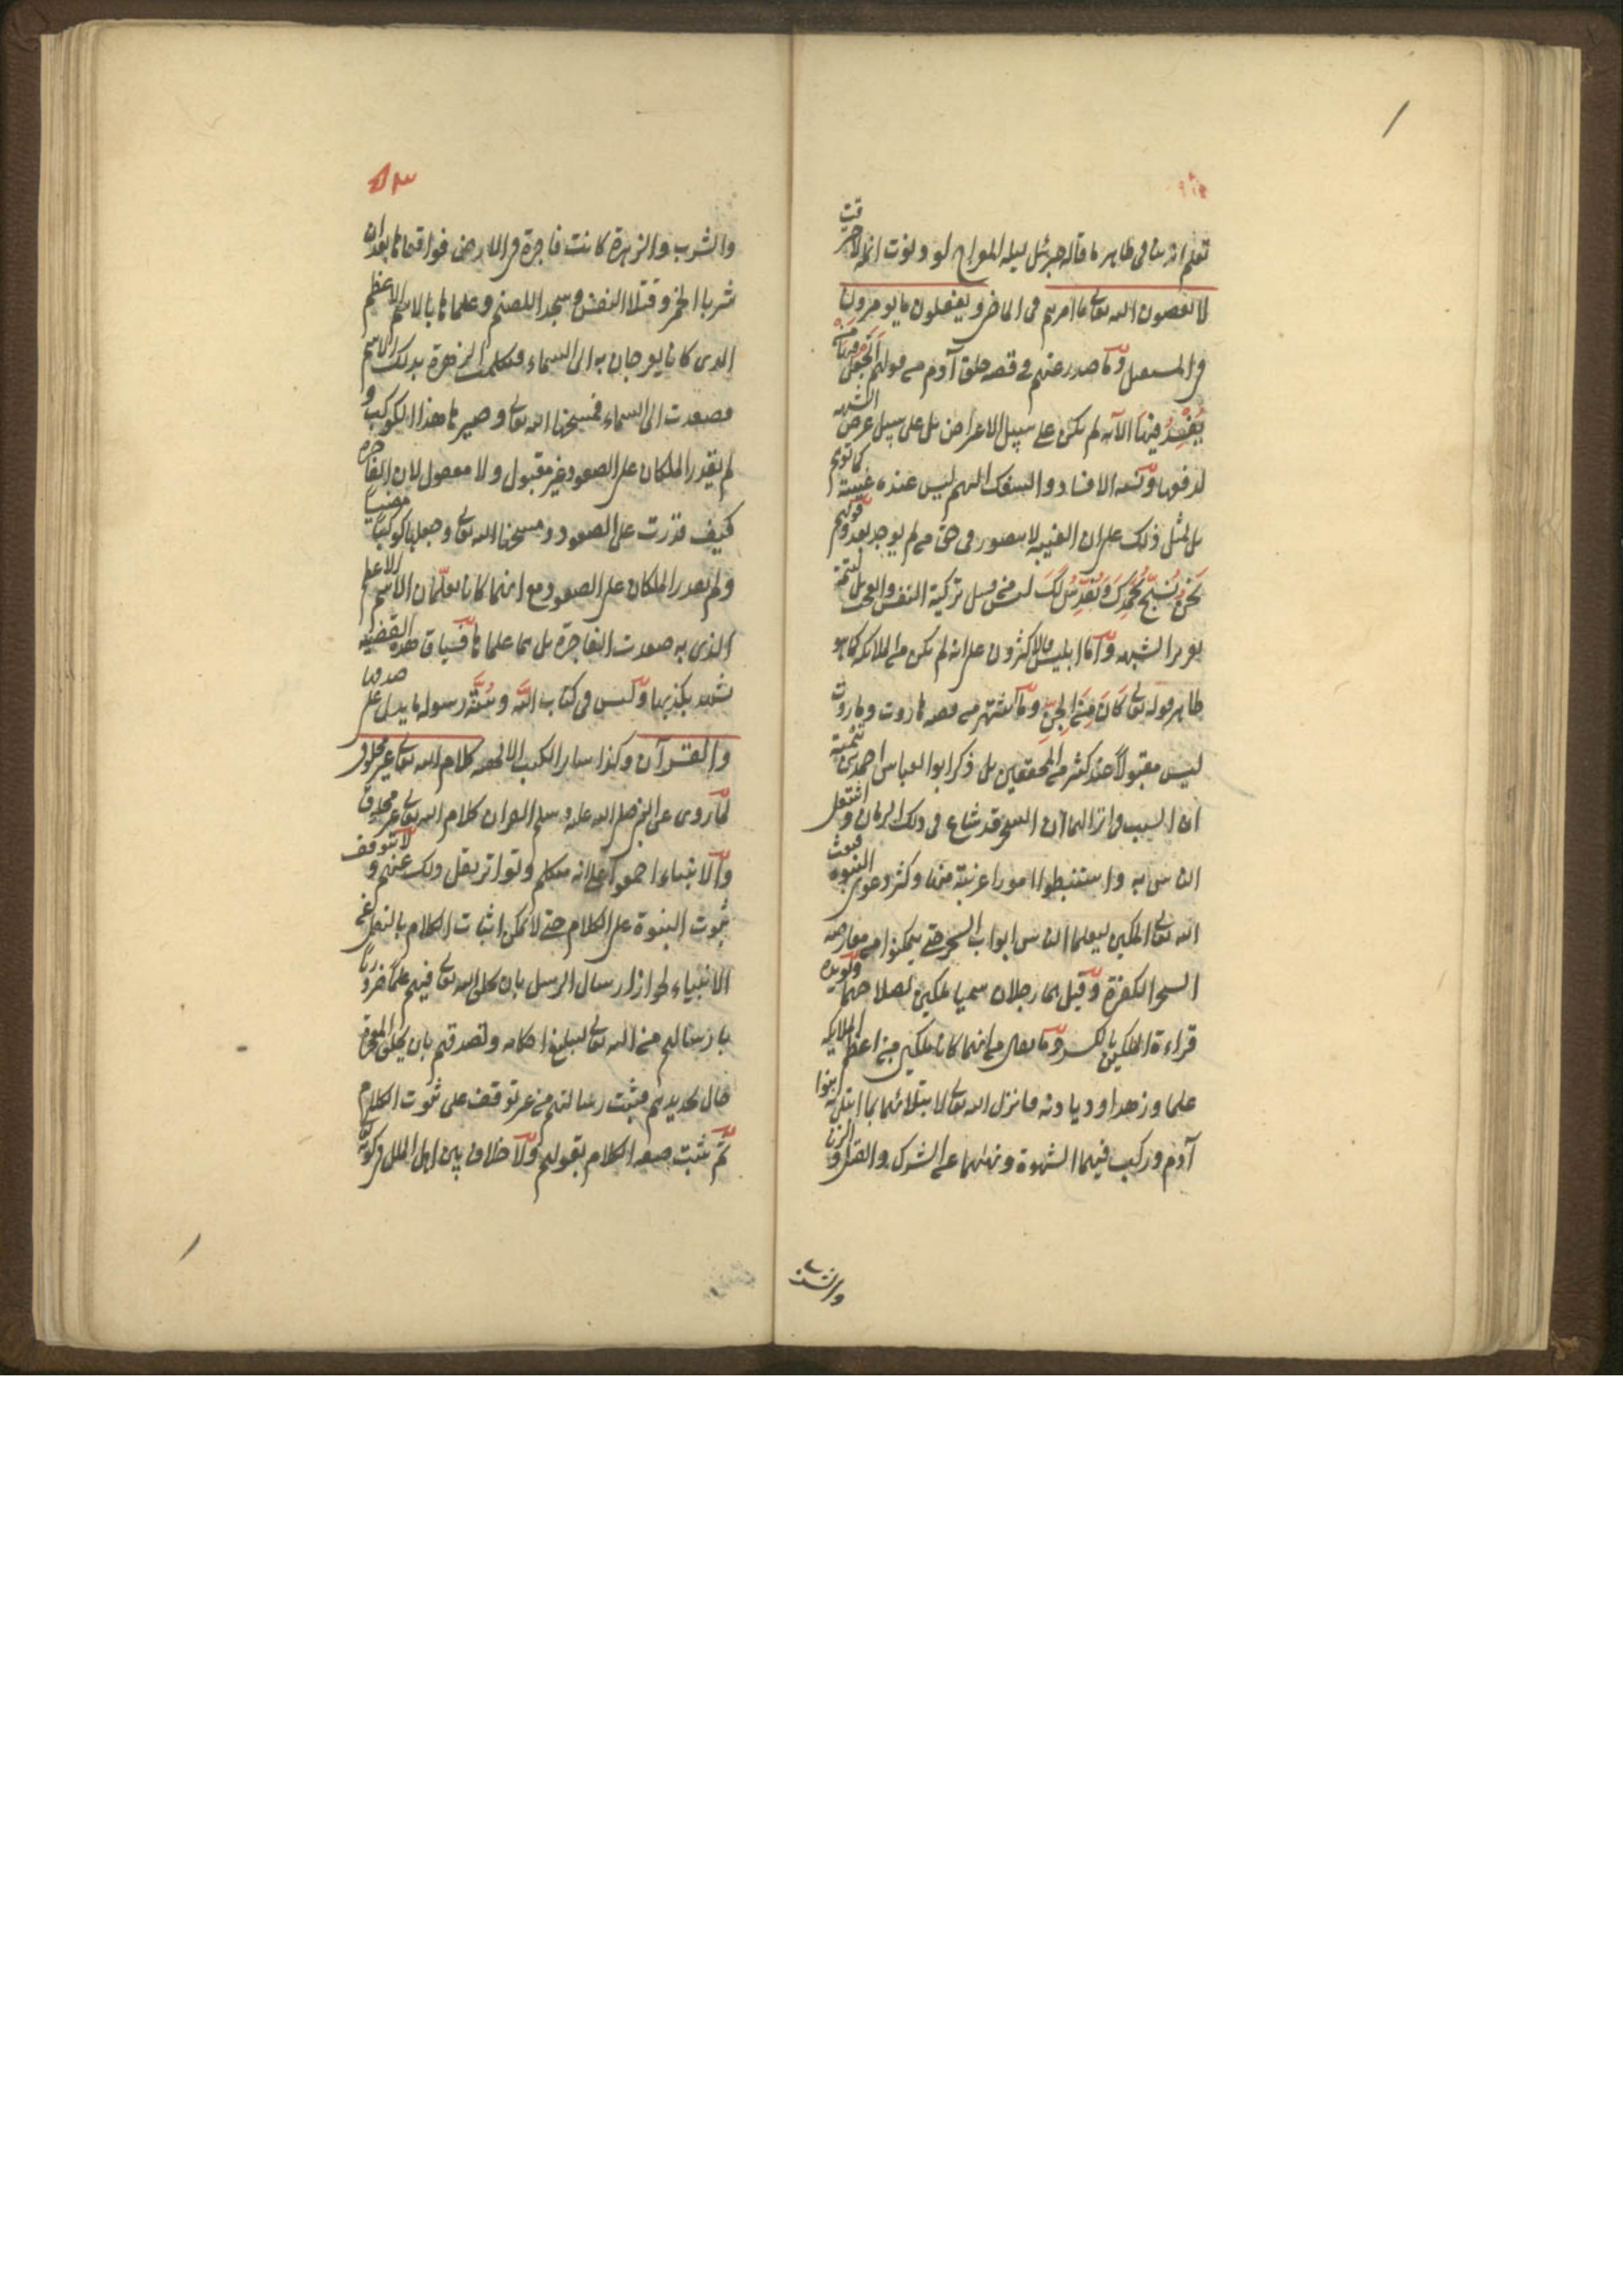 تعلم انه ينافى ظاهر ما قاله جبرئيل ليلة المعراج لو دنوت انملة لاحترقت
لا يعصون الله تعالى ما امرهم فى الماضى ويفعلون ما يومرون
فى المستقبل وما صدر عنهم فى قصة خلق آدم من قولهم اَتَجْعَلُ فِيهَا مَنْ
يُفْسِدُ فِيهَا الآيه لم يكن على سبيل الاعراض بل على سبيل عرض الشبهه
لدفعها ونسبة الافساد والسفك اليهم ليس عنده غيبة كما توهم
بل لمثل ذلك على ان الغيبة لا يتصور فى حق من لم يوجد بعد وقولهم
نَحْنُ نُسَبِّحُ بِحَمْدِكَ وَنُقَدِّسُ لَكَ ليس من قبيل تزكية النفس والعجب بل لتتمة
تقرير الشبهه واما ابليس فالاكثرون على انه لم يكن من الملائكة كما هو
ظاهر قوله تعالى كَانَ مِنَ الْجِنِّ وما اشتهر من قصة هاروت وماروت
ليس مقبولاً عند كثير من المحققين بل ذكر ابو العباس احمد بن تيمية
ان السبب فى انزالهما ان السحر قد شاع فى ذلك الزمان واشتغل
الناس به واستنبطوا امورا غريبة منها وكثر دعوى النبوة فبعث
الله تعالى الملكين ليعلما الناس ابواب السحر حتى يتمكنوا من معارضة
السحرا الكفرة وقيل هما رجلان سميا ملكين لصلاحهما ويويده
قراءة الملكين بالكسر وما يقال من انهما كانا ملكين من اعظم الملايكه
علما وزهدا وديانة فانزل الله تعالى لابتلائهما بما ابتلى به بنوا
آدم وركب فيهما الشهوة ونهيهما عن الشرك والقتل والزنا
والشرب
٥٣
والشرب والزهرة كانت فاجرة فى الارض فواقعاها بعد ان
شربا الخمر وقتلا النفس وسجدا للصنم وعلماها بالاسم الاعظم
الذى كانا يعرجان به الى السماء فتكلمت الزهرة بذلك الاسم
فصعدت الى السماء فمسخها الله تعالى وصيرها هذا الكوكب و
لم يقدر الملكان على الصعود غير مقبول ولا معقول لان الفاجره
كيف قدرت على الصعود ومسخها الله تعالى وجعلها كوكبا مضيئا
ولم يقدر الملكان على الصعود مع انهما كانا يعلّمان الاسم الاعظم
الذى به صعدت الفاجرة بل هما علماها فسياق هذه القضيه
تشهد بكذبها وليس فى كتاب اللّه وسُنّة رسوله ما يدل على صدقها
والقرآن وكذا سائر الكتب الالهيه كلام الله تعالى غير مخلوق
لما روى عن النبى صلى الله عليه وسلم القران كلام الله تعالى غير مخلوق
والانبياء اجمعوا على انه متكلم وتواتر نقل ذلك عنهم ولا يتوقف
ثبوت النبوة على الكلام حتى لا يمكن اثبات الكلام بالنقل عن
الانبياء لجواز ارسال الرسل بان يخلق الله تعالى فيهم علماً ضرورياً
بارسالهم من الله تعالى لتبليغ احكامه وتصدقهم بان يخلق المعجزة
حال تحديهم فيثبت رسالتهم من غير توقف على ثبوت الكلام
ثم يثبت صفة الكلام بقولهم ولا خلاف بين اهل الملل فى كونه تعالى